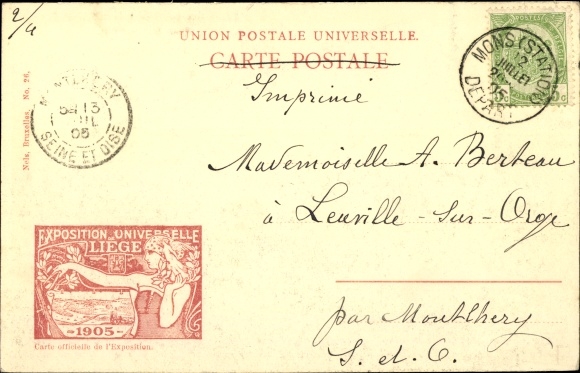 2/4
UNION POSTALE UNIVERSELLE.
CARTE POSTALE
Imprimé
MONS (STATION)
JUILLET
DEPART
MONTLHERY
13
05
SEINE ET OISE
Nels, Bruxelles, No. 26.
Mademoiselle A. Berteau
à Leuville-sur-Orge
EXPOSITION UNIVERSELLE
LIEGE
1905
Carte officielle de l'Exposition.
par Montlhery
S. et O.